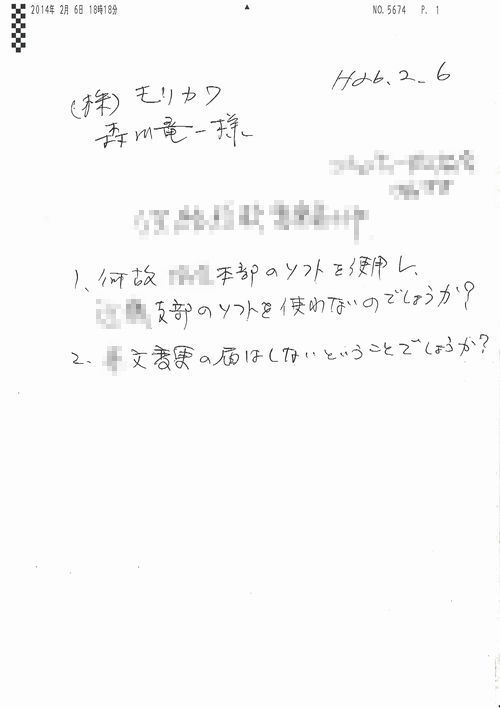 2014年 2月 6日 18時18分 NO. 5674 P. 1
H26.2.6
(株) モリカワ
森川竜一様
1、何故 本部のソフトを使用し、
支部のソフトを使わないのでしょうか?
2. 文変更の届はしないということでしょうか?